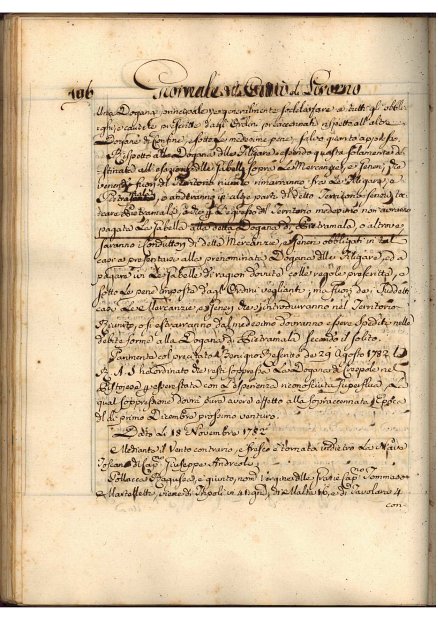 106 Giornale di Livorno
Dogana principale, e generalmente soddisfare a tutti gl' obbli-
ghi, e cautele prescritte dagl' Ordini relativamente rispetto all' altre
Dogane di Confine, e sotto le medesime pene,
Rispetto alla Dogana delle Filigare essendo questa solamente de-
stinata all' esazione delle Gabelle sopra le Mercanzie, e Generi, che
venendo fuori del Territorio rimarranno fra le Filigare, e
Pietramala, o andranno in altre parti del detto Territorio senza toc-
care Pietramala, del Territorio medesimo non avranno
pagata la Gabella alla detta Dogana di Pietramala, o altrove
saranno i Conduttori di dette Mercanzie, e Generi obbligati in tal
caso a presentarsi alla prenominata Dogana delle Filigare, ed a
pagare ivi le Gabelle di ragione dovute colle regole prescritte, e
sotto le pene imposte dagl' Ordini veglianti; ma fuori dei suddetti
casi le Mercanzie, e Generi che s' introdurranno nel Territorio
Riunito, o si estrarranno dal medesimo dovranno essere spedite nelle
dette forme alla Dogana di Pietramala secondo il solito.
Parimente col precitato Benigno Rescritto de' 29 Agosto 1782
S. A. R. ha ordinato che resti soppressa la Dogana di Crespole nel
Pistojese essendo stata con l' esperienza riconosciuta superflua, la
qual soppressione dovrà pure avere effetto alla sopraccennata Epoca
del dì primo Dicembre prossimo venturo.
Dato li 18 Novembre 1782
Mediante il Vento contrario, e fresco è tornata indietro la Nave
Toscana di Cap. Giuseppe Andreoli.
Pollacca Ragusea, è giunta, nom. Vergine delle Grazie Cap. Tommaso
Martellette, viene di Tripoli in 41 giorni, di Malta 16, e di Favolara 4
con